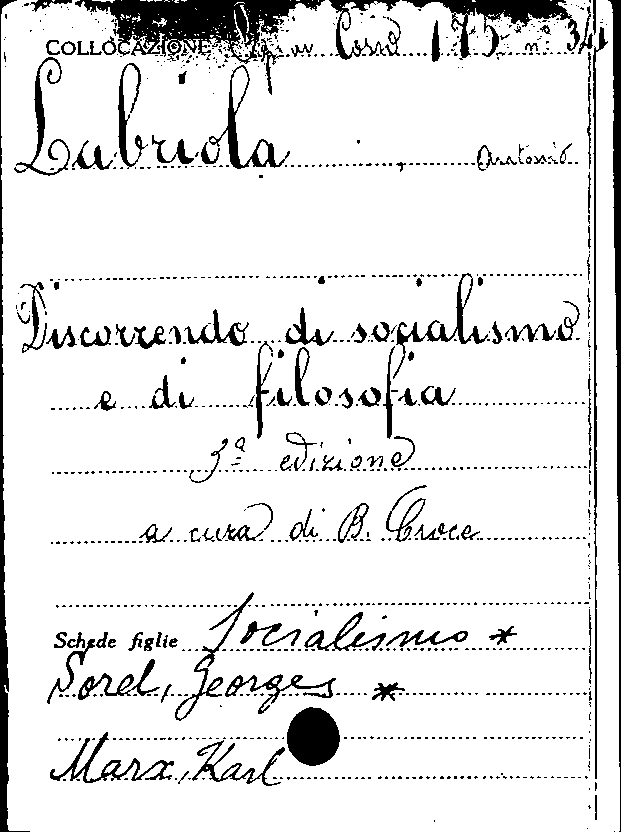 COLLOCAZIONE Corso 175 n° 341
Labriola, Antonio
Discorrendo di socialismo
e di filosofia
3ª edizione
a cura di B. Croce
Schede figlie Socialismo *
Sorel, Georges *
Marx, Karl